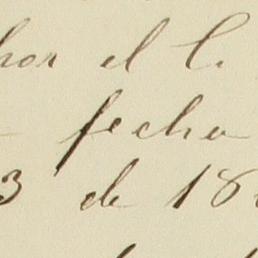 por el C.
fecha
3 de 18